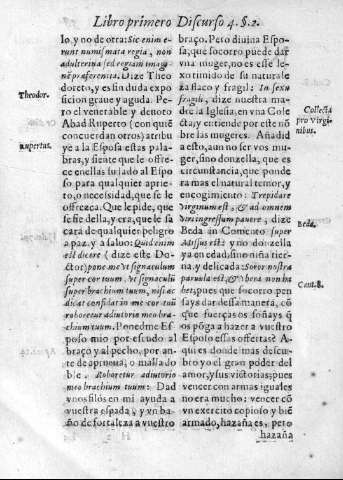 Libro primero Discurso 4. §. 2.
lo, y no de otra: Sic enim e-
runt numismata regia, non
adulterina sed regiam imagi-
nē præferentia. Dize Theo
doreto, y es sin duda expo
sicion graue y aguda. Pe
ro el venerable y deuoto
Abad Ruperto (con quiē
concuerdan otros) atribu
ye a la Esposa estas pala-
bras, y siente que le ofre-
ce en ellas su lado al Esposo
para qualquier aprie-
to, o necessidad, que se le
ofrezca. Que le pide, que
se fie della, y era, que le sa
cara de qualquier peligro
a paz, y a saluo: Quid enim
est dicere (dize este Do-
ctor) pone me vt signaculum
super cor tuum. Vt signaculū
super brachium tuum, nisi ac
dicat confidat in me cor tuū
roboretur adiutorio meo bra-
chium tuum. Ponedme Es-
poso mio por escudo al
braço y al pecho, por an-
te de aprueua, o malla do
ble. Roboretur adiutorio
meo brachium tuum: Dad
vnos filos en mi ayuda a
vuestra espada, y vn ba-
ño de fortaleza a vuestro
Theodor.
Rupertus.
braço. Pero diuina Espo-
sa, que socorro puede dar
vna muger, no es esse le-
xo timido de su naturale
za flaco y fragil: In sexu
fragili, dize nuestra ma-
dre la Iglesia, en vna Cole
cta, y entiende por este nō
bre las mugeres. Añadid
a esto, aun no ser vos mu-
ger, sino donzella, que es
circunstancia, que ponde
ra mas el natural temor, y
encogimiento: Trepidare
virginum est, & ad omnem
viri ingressum pauere, dize
Beda en Comento super
Missus est: y no donzella
ya en edad, sino niña tier-
na, y delicada: Soror nostra
paruula est, & vbera non ha
bet, pues que socorro pen
says dar dessa manera, cō
que fuerças os soñays q̄
os pōga a hazer a vuestro
Esposo essas offertas? A-
qui es donde mas descu-
bro yo el gran poder del
amor, y sus victorias; pues
vencer con armas iguales
no era mucho: vencer cō
vn exercito copioso y biē
armado, hazaña es, pero
hazaña
Collecta
pro Virgi-
nibus.
Beda.
Cant. 8.